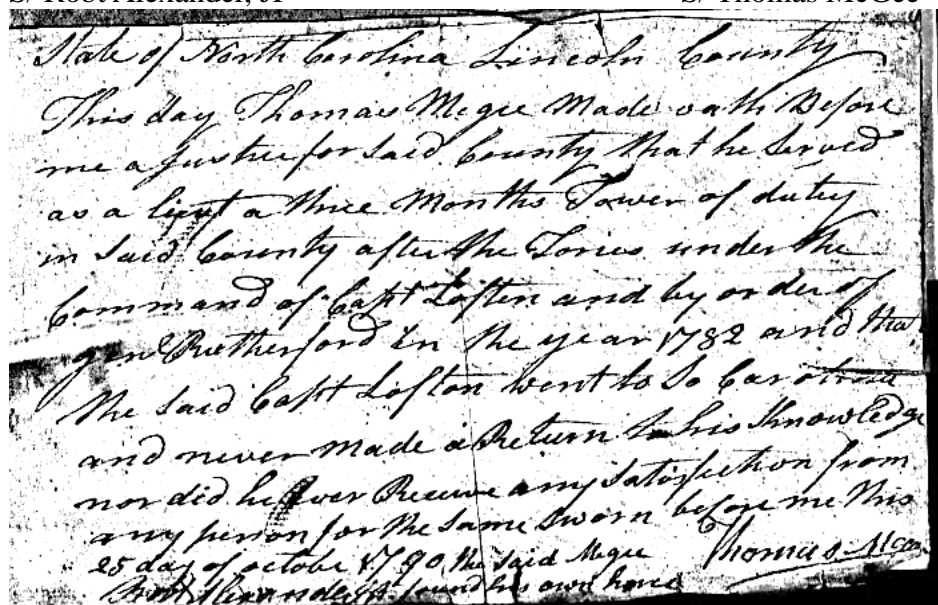 S/ Robt Alexander, JP S/ Thomas McGee
State of North Carolina Lincoln County
This day Thomas Mcgee Made oath Before
me a Justice for Said County that he Served
as a lieut a three Months Tower of duty
in Said County after the Tories under the
Command of Capt Loften and by order of
genl Rutherford in the year 1782 and that
the Said Capt Lofton went to So Carolina
and never made a Return to his Knowledge
nor did he Ever Receive any Satisfection from
any person for the Same Sworn before me this
25 day of octobe 1790 the Said Mcgee Thomas McGee
Robt Alexander found his own horse